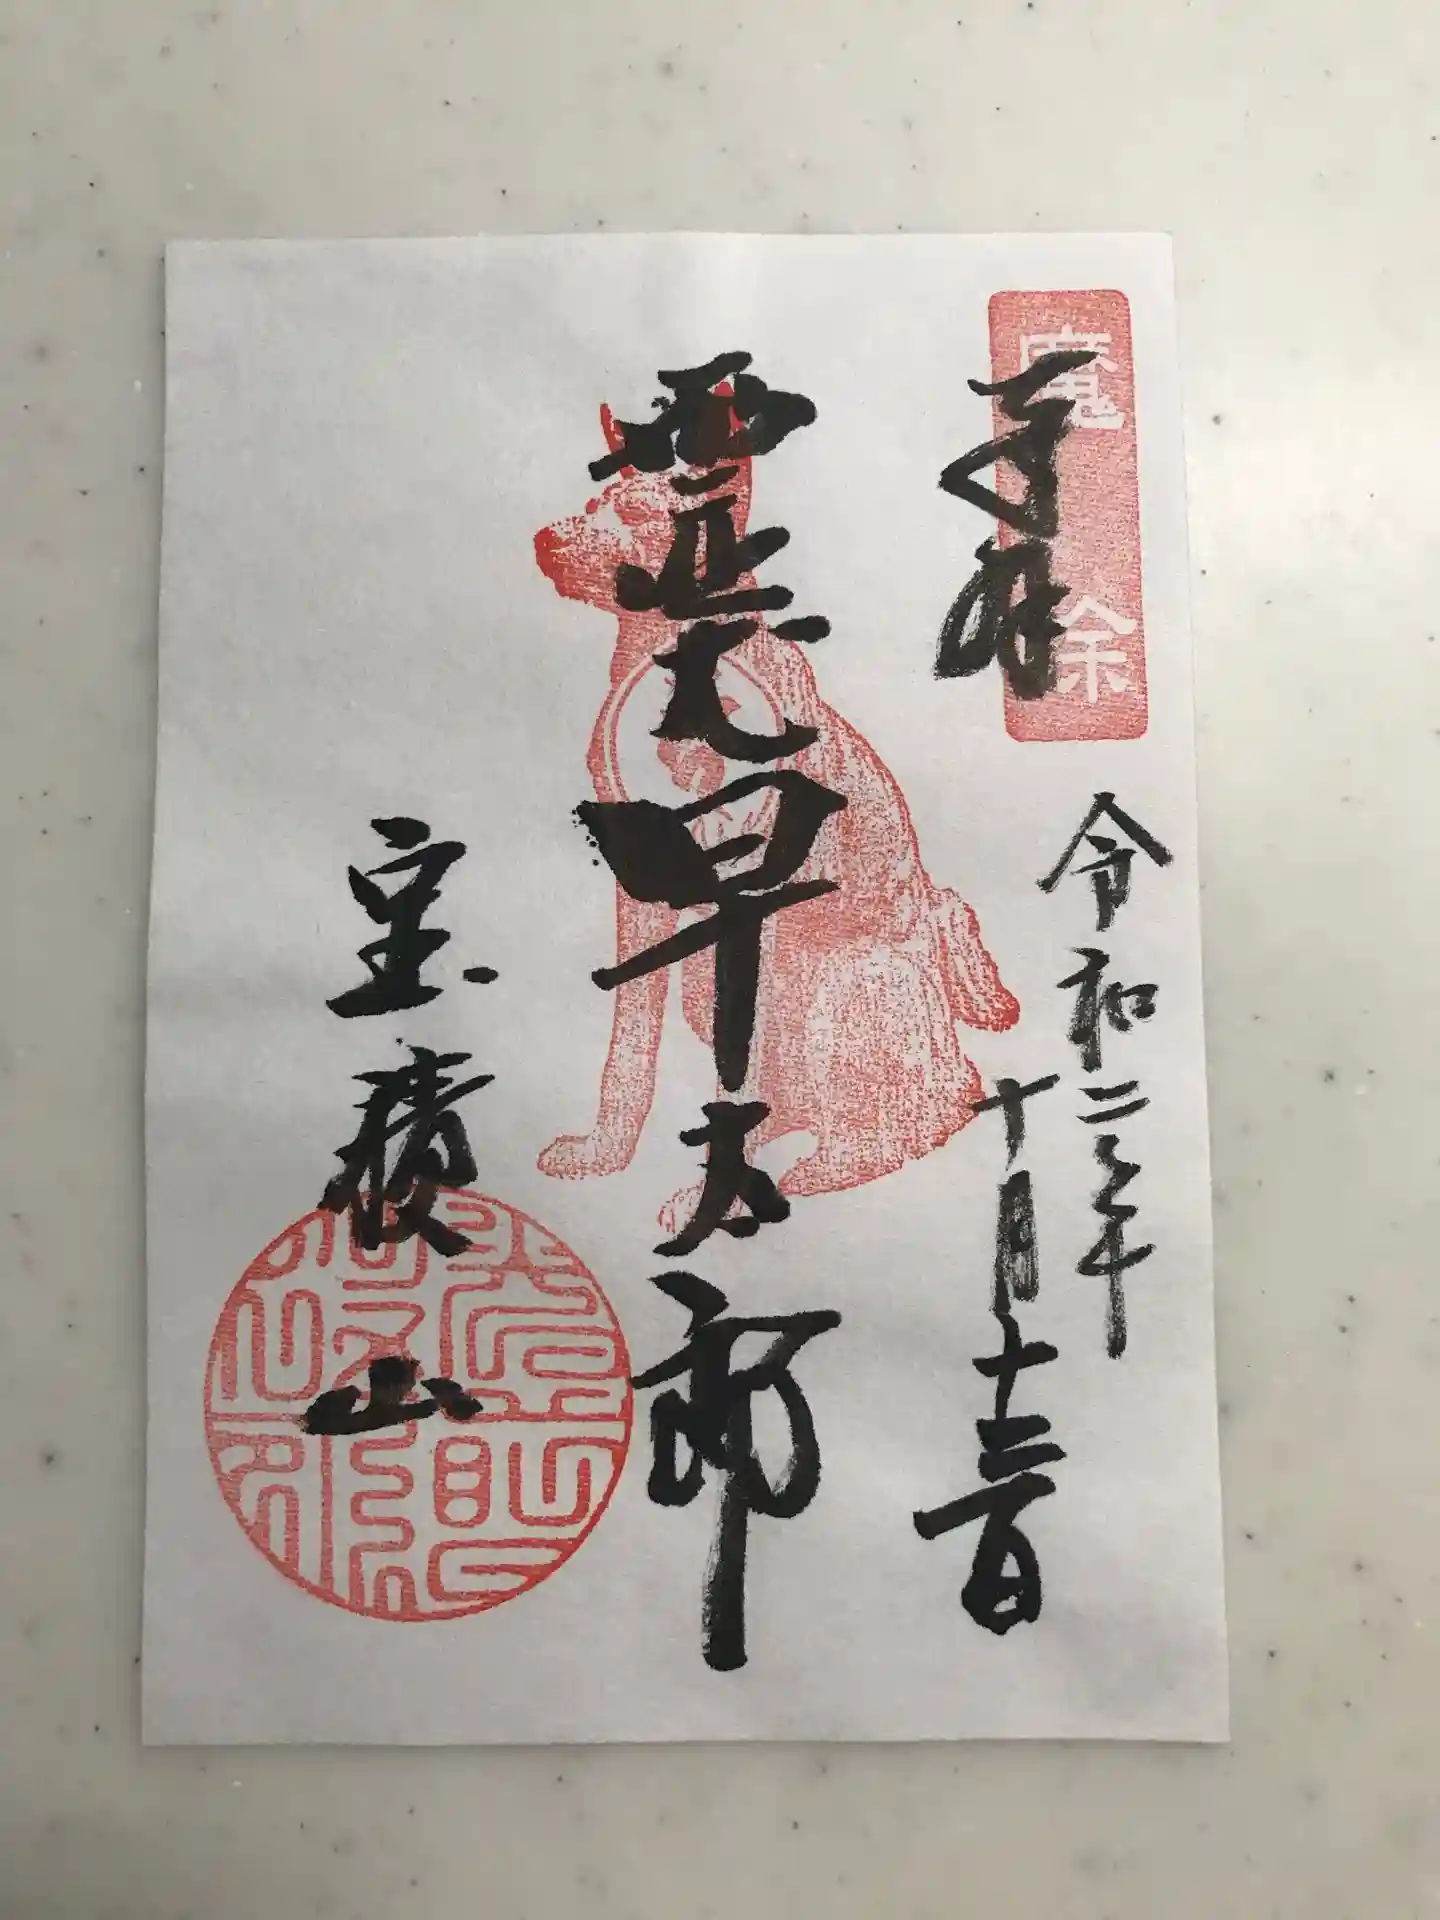 魔除
奉拝
令和二年
十月十二日
霊犬早太郎
宝積山